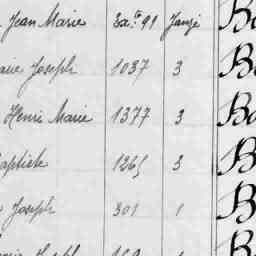 Jean Marie Ex.te 91 Janzé B
arie Joseph 1037 3 B
Henri Marie 1377 3 B
aptiste 1265 3 B
Joseph 301 1 B